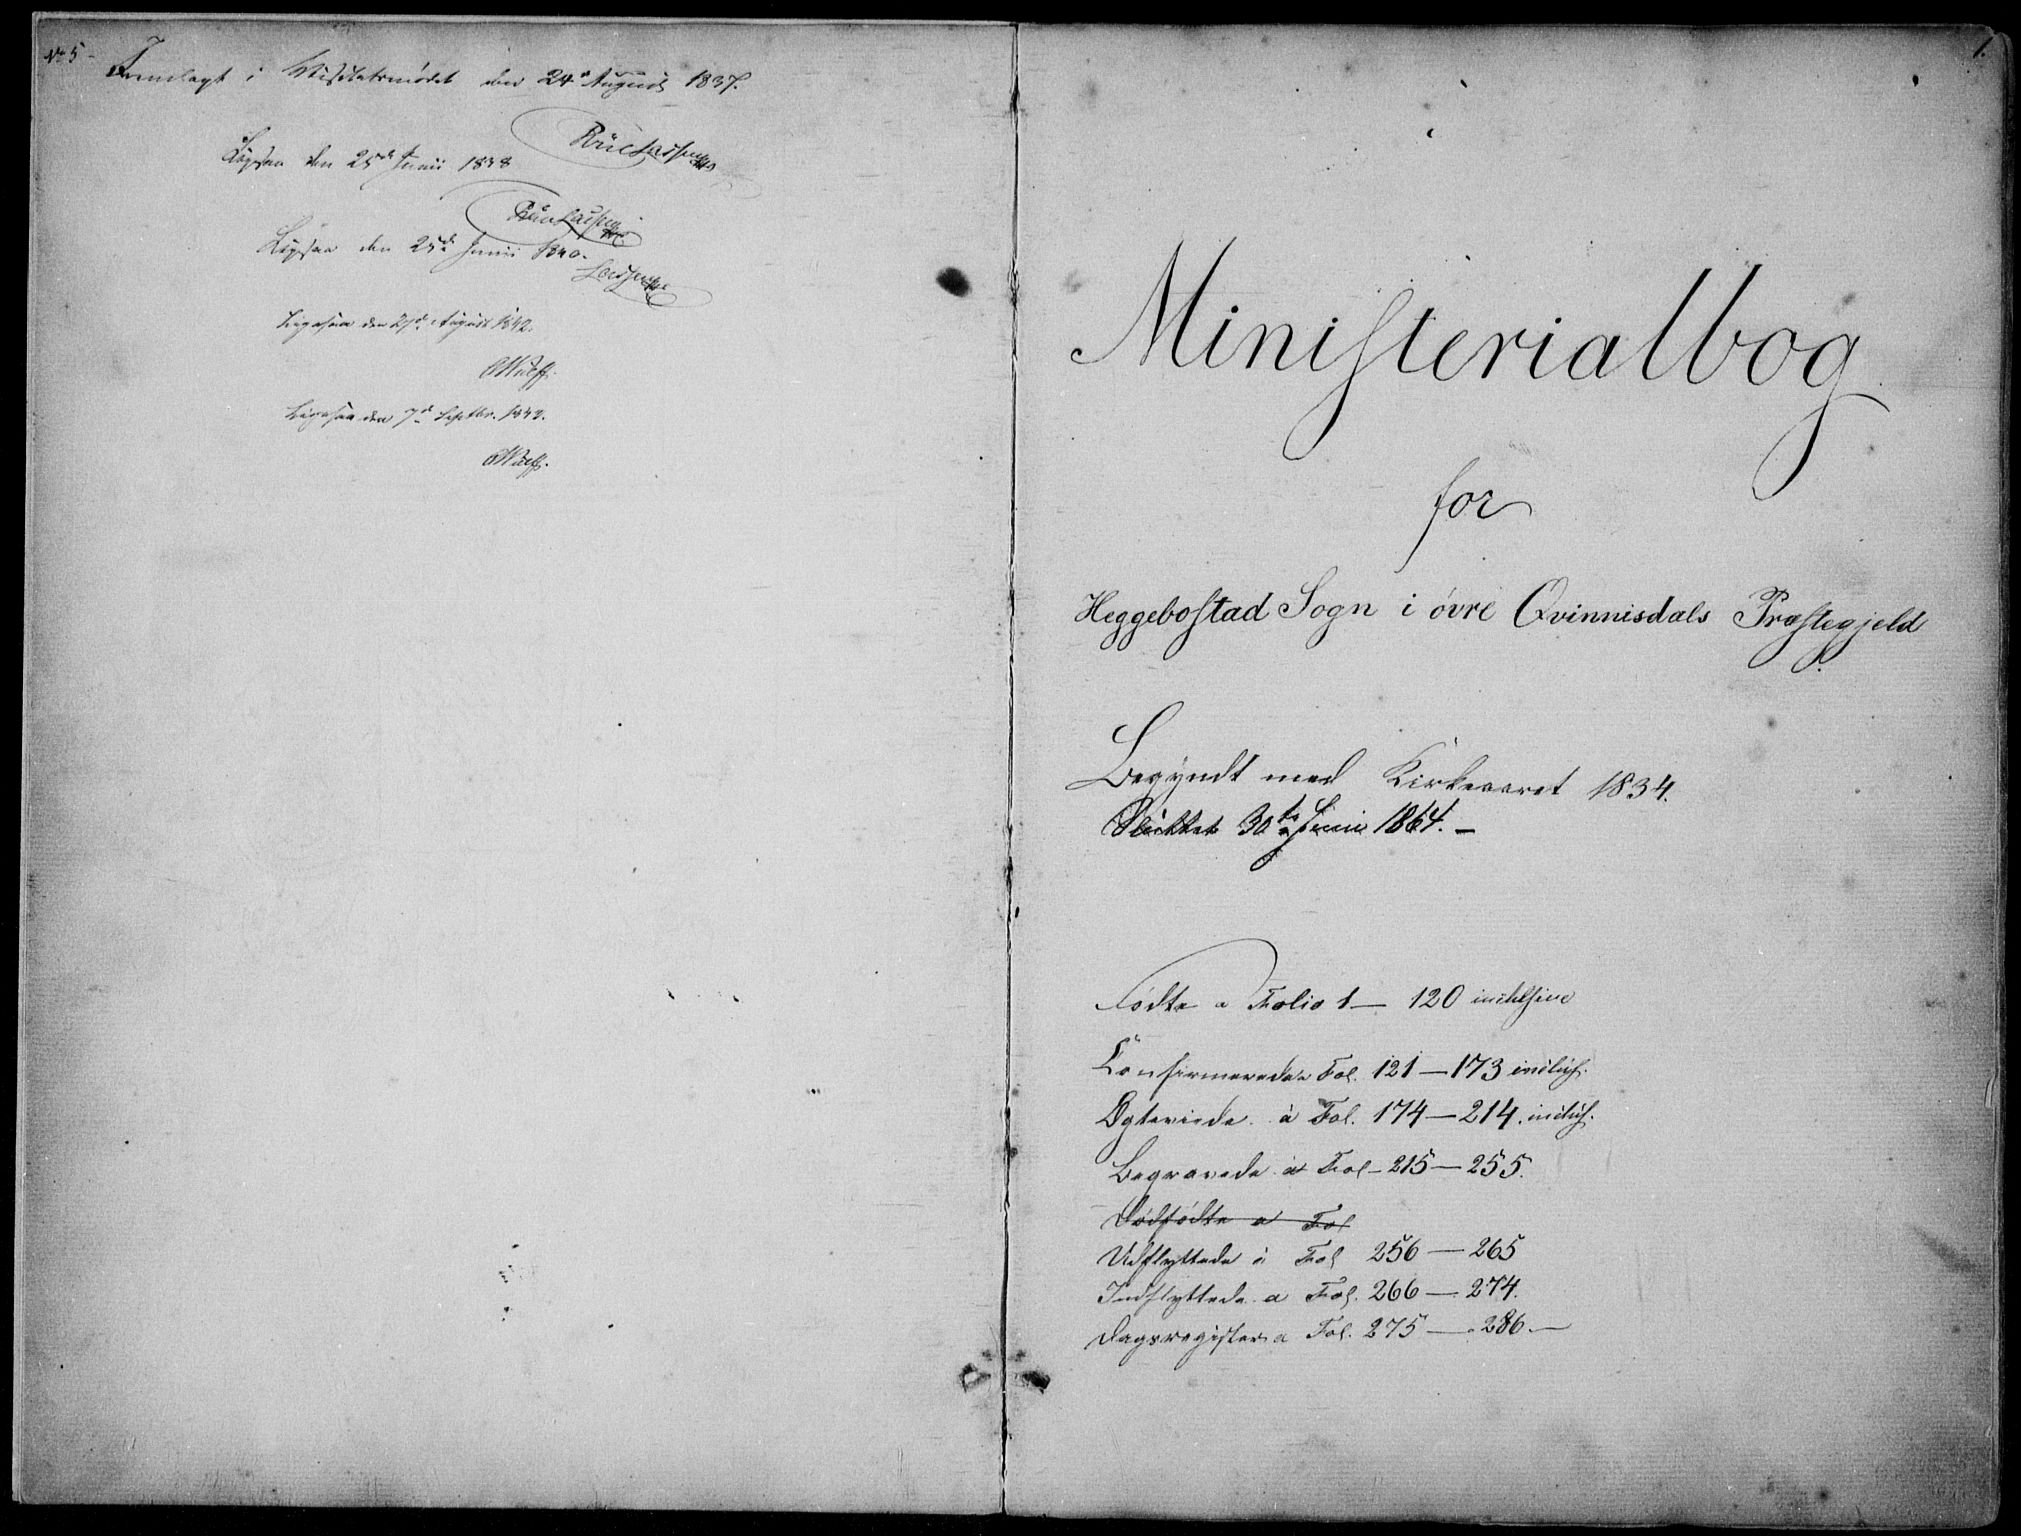 No 5 -
Fremlagt i Visitatsmødet den 24de August 1837.
Ligesaa den 25de Junii 1838
Ligesaa den 25de Junii 1840.
Ligesaa den 27de August 1842.
OWulff.
Ligesaa den 7de Septbr. 1843.
OWulff.
1.
Ministerialbog
for
Heggebostad Sogn i øvre Qvinnisdals Præstegjeld
Begyndt med Kirkeaaret 1834.
Sluttet 30te Juni 1864. –
Fødte a Folio 1 — 120 inclusive
Confirmerede a Fol. 121 — 173 inclus.
Ægteviede à Fol. 174 — 214. inclus.
Begravede à Fol – 215 — 255.
Dødfødte a Fol
Udflyttede à Fol 256 — 265
Indflyttede a Fol. 266 — 274.
Dagsregister a Fol. 275 — 286 —